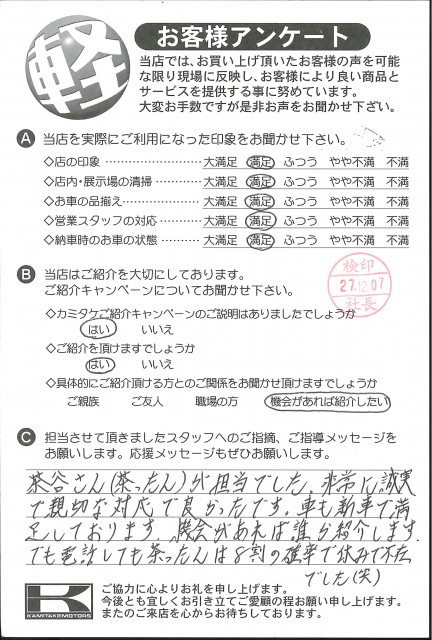 軽
お客様アンケート
当店では、お買い上げ頂いたお客様の声を可能
な限り現場に反映し、お客様により良い商品と
サービスを提供する事に努めています。
大変お手数ですが是非お声をお聞かせ下さい。
A 当店を実際にご利用になった印象をお聞かせ下さい。
◇店の印象 ………………… 大満足 満足 ふつう やや不満 不満
◇店内・展示場の清掃 ………… 大満足 満足 ふつう やや不満 不満
◇お車の品揃え ……………… 大満足 満足 ふつう やや不満 不満
◇営業スタッフの対応 ………… 大満足 満足 ふつう やや不満 不満
◇納車時のお車の状態 ………… 大満足 満足 ふつう やや不満 不満
B 当店はご紹介を大切にしております。
ご紹介キャンペーンについてお聞かせ下さい。
検印
27.12.07
社長
◇カミタケご紹介キャンペーンのご説明はありましたでしょうか
はい いいえ
◇ご紹介を頂けますでしょうか
はい いいえ
◇具体的にご紹介頂ける方とのご関係をお聞かせ頂けますでしょうか
ご親族 ご友人 職場の方 機会があれば紹介したい
C 担当させて頂きましたスタッフへのご指摘、ご指導メッセージを
お願いします。応援メッセージもぜひお願いします。
茶谷さん(茶ったん)が担当でした。非常に誠実
で親切な対応で良かったです。車も新車で満
足しております。機会があれば誰か紹介します。
でも電話しても茶ったんは8割の確率で休みで不在
でした(笑)
K
KAMITAKEMOTORS
ご協力に心よりお礼を申し上げます。
今後とも宜しくお引き立てご愛顧の程お願い申し上げます。
またのご来店を心からお待ちしております。